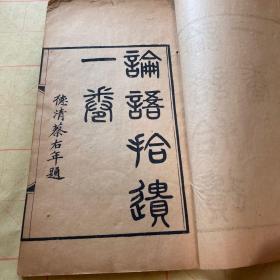 論語拾遺
一卷
德清蔡右年題